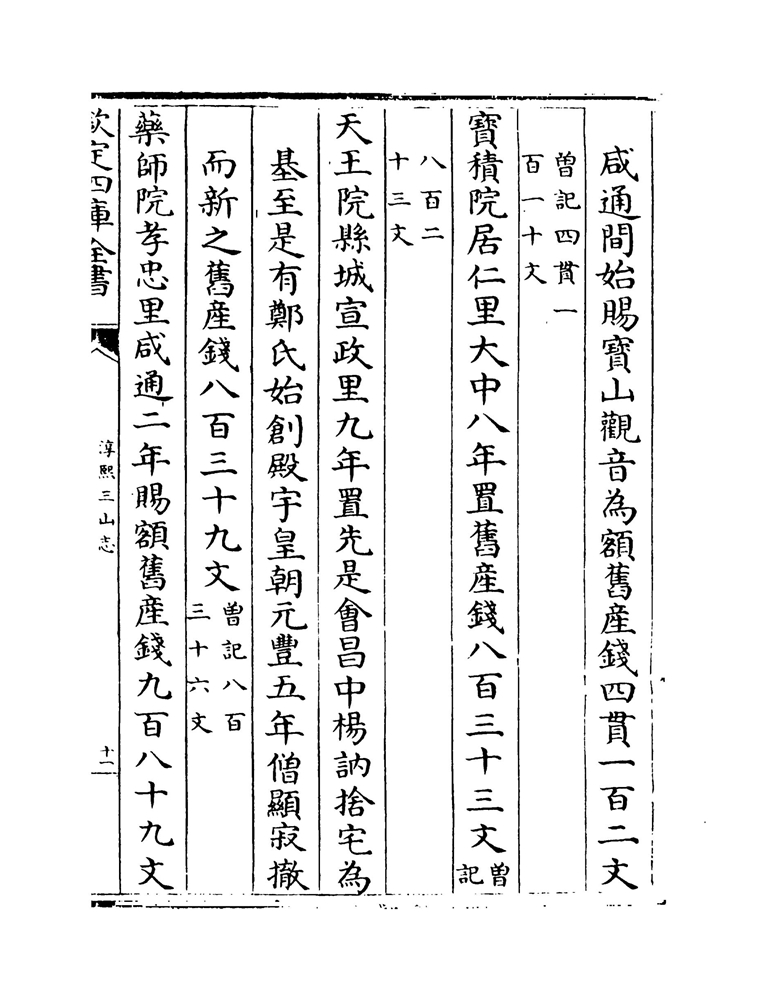 咸通間始賜寶山觀音為額舊產錢四貫一百二文
曽記四貫一
百一十文
寶積院居仁里大中八年置舊產錢八百三十三文
曽
記
八百二
十三文
天王院縣城宣政里九年置先是會昌中楊訥捨宅為
基至是有鄭氏始創殿宇皇朝元豐五年僧顯寂撤
而新之舊產錢八百三十九文
曽記八百
三十六文
藥師院孝忠里咸通二年賜額舊產錢九百八十九文
欽定四庫全書
淳熙三山志
十二